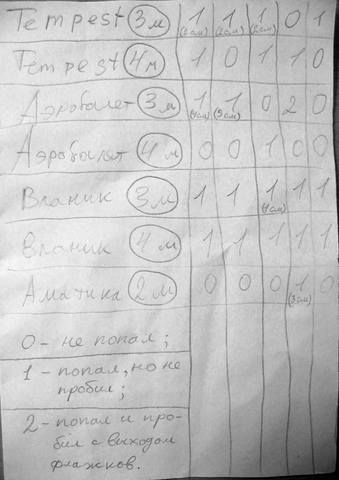 Tempest 3м 1 (2см) 1 (1см) 1 (2см) 0 1
Tempest 4м 1 0 1 1 0
Аэробылет 3м 1 (4см) 1 (9см) 0 2 0
Аэробылет 4м 0 0 1 0 0
Вланик 3м 1 1 1 (4см) 1 1
Вланик 4м 1 1 1 1 1
Аматика 2м 0 0 0 1 (3см) 0
0 - не попал;
1 - попал, но не
пробил;
2 - попал и про-
бил с выходом
флажков.